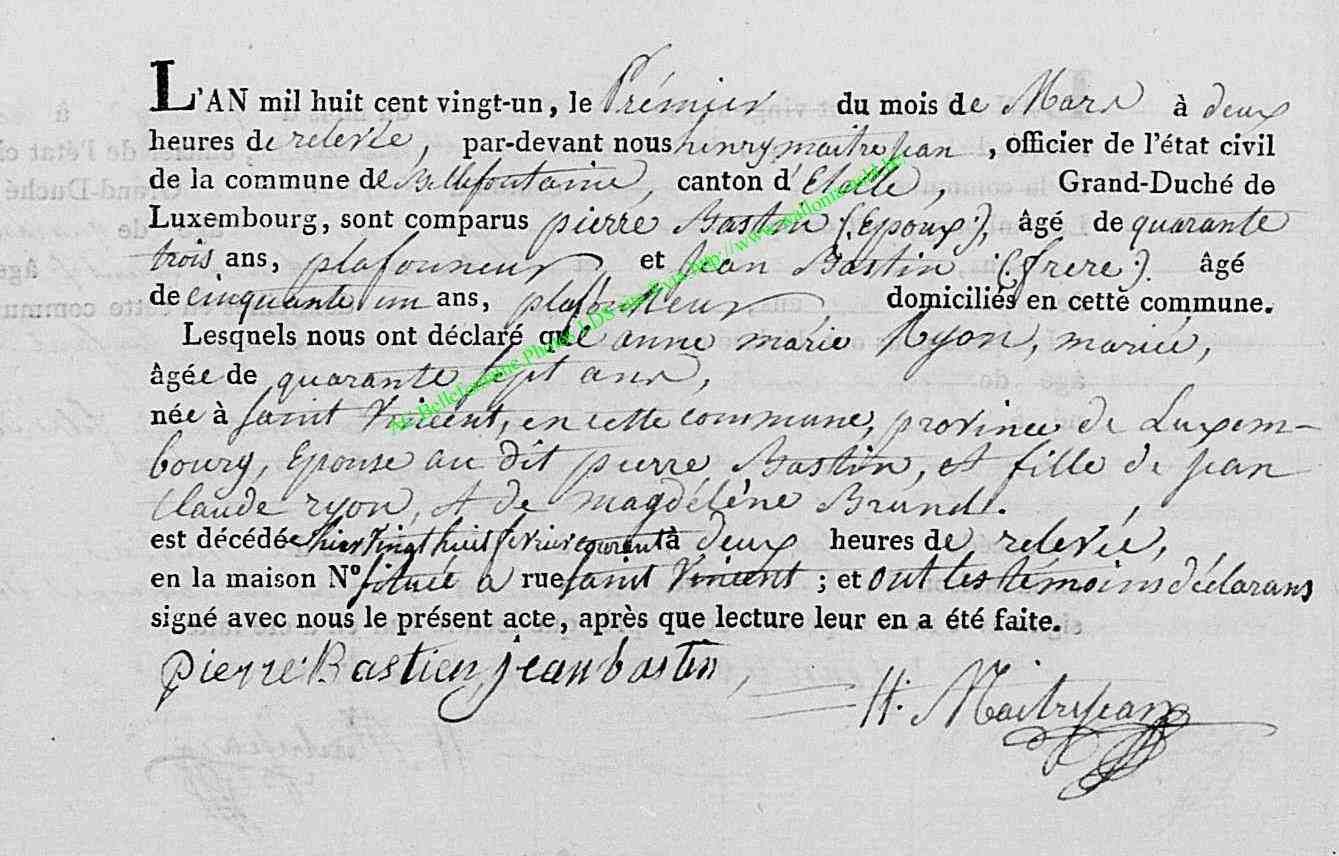 L'AN mil huit cent vingt-un, le Prémier du mois de Mars à deux
heures de relevée, par-devant nous henry maitrejean, officier de l'état civil
de la commune de Bellefontaine, canton d'Etalle, Grand-Duché de
Luxembourg, sont comparus pierre Bastin (Epoux), âgé de quarante
trois ans, plafonneur et Jean Bastin (frere). âgé
de cinquante un ans, plafonneur, domiciliés en cette commune.
Lesquels nous ont déclaré que anne marie Ryon, mariée,
âgée de quarante sept ans,
née à saint Vincent, en cette commune, province de Luxem-
bourg, Epouse au dit pierre Bastin, et fille de jean
Claude ryon, et de magdélène
est décédée hier vingt huit fevrier courant à deux heures de relevée,
en la maison N° située a rue saint Vincent ; et ont les témoins déclarans
signé avec nous le présent acte, après que lecture leur en a été faite.
pierre Bastien jean bastin
H. Maitrejean